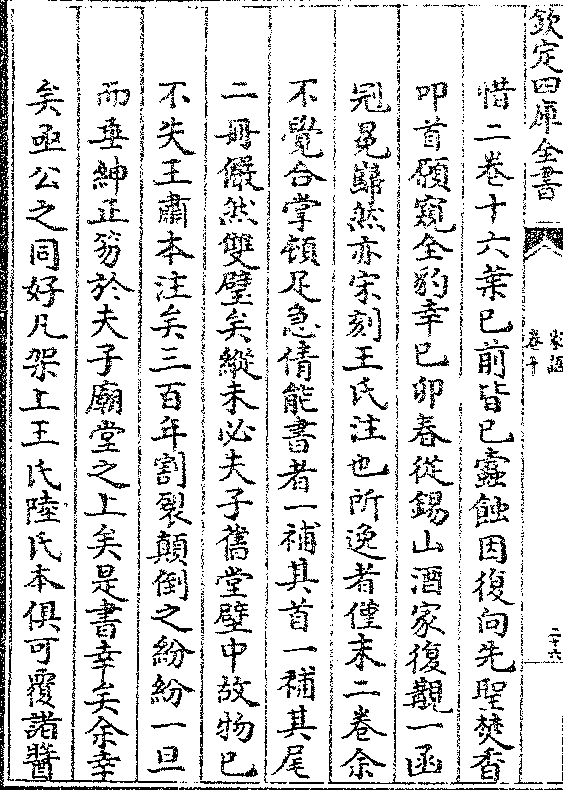 欽定四庫全書
家語
卷十
二十六
惜二卷十六葉已前皆已蠹蝕因復向先聖焚香
叩首願窺全豹幸己卯春從錫山酒家復覯一函
冠冕巋然亦宋刻王氏注也所逸者僅末二卷余
不覺合掌頓足急倩能書者一補其首一補其尾
二冊儼然雙璧矣縱未必夫子舊堂壁中故物已
不失王肅本注矣三百年割裂顛倒之紛紛一旦
而垂紳正笏於夫子廟堂之上矣是書幸矣余幸
矣亟公之同好凡架上王氏陸氏本俱可覆諸醬